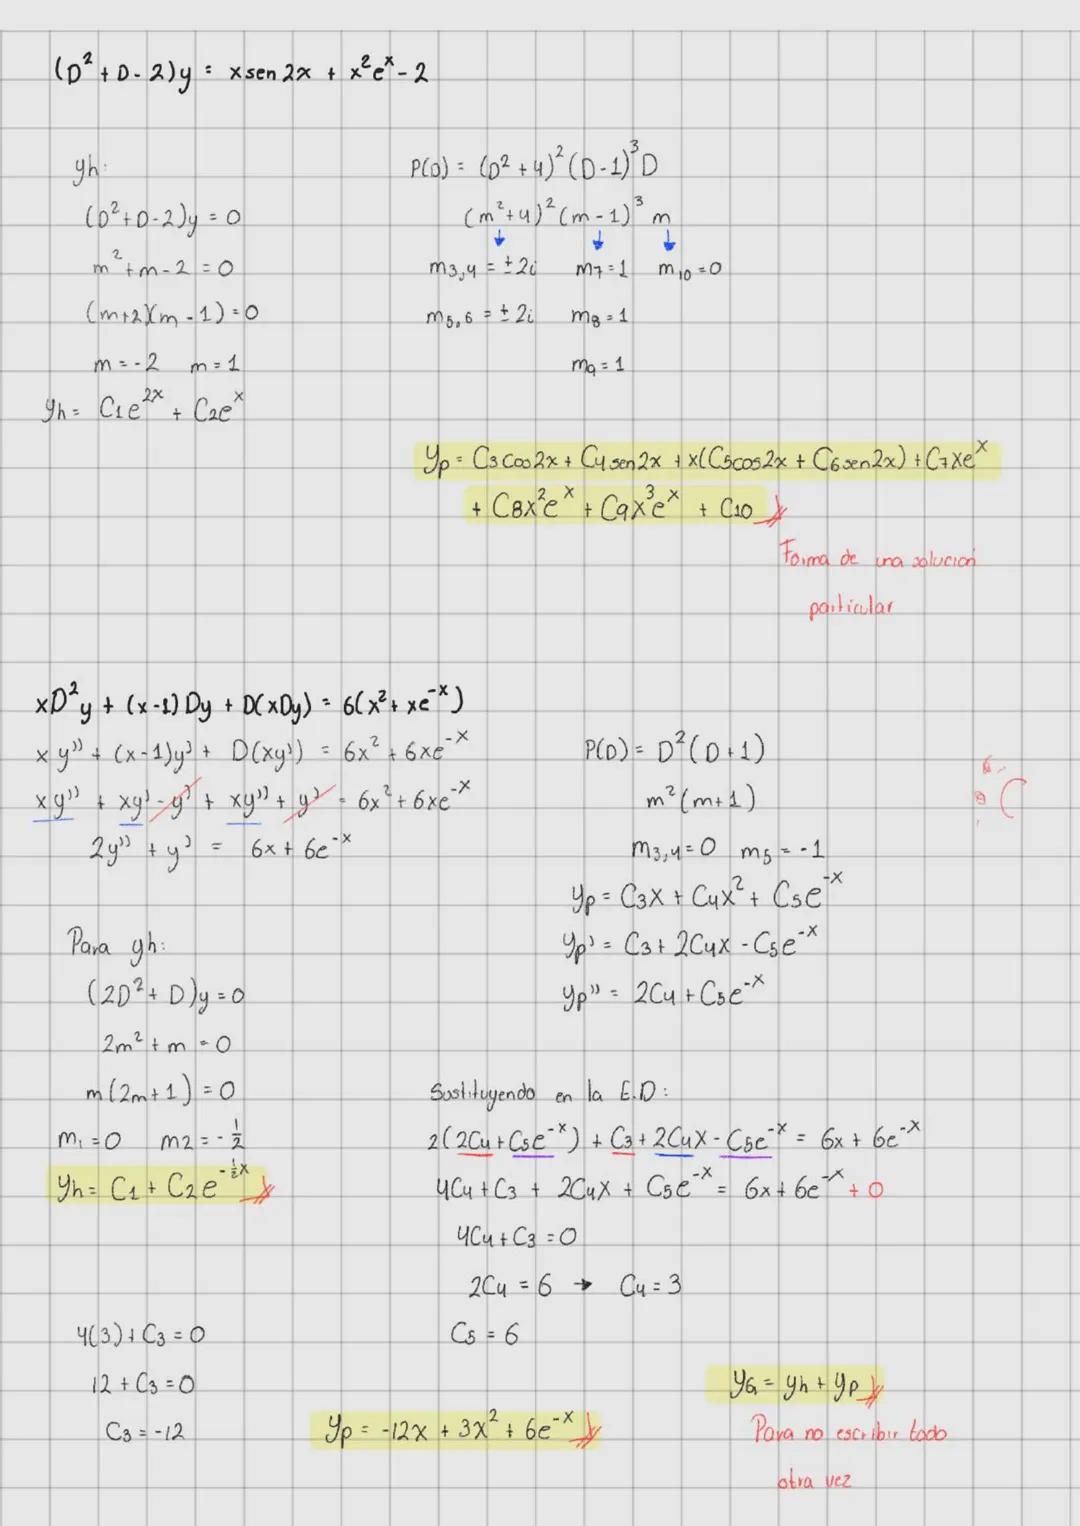 (D² + D - 2)y = x sen 2x + x²eˣ - 2
yh:
(D² + D - 2)y = 0
m² + m - 2 = 0
(m+2)(m - 1) = 0
m = -2 m = 1
yh = C1e^2x + C2eˣ
P(D) = (D² + 4)² (D - 1)³ D
(m² + 4)² (m - 1)³ m
m3,4 = ± 2i m7 = 1 m10 = 0
m5,6 = ± 2i m8 = 1
m9 = 1
yp = C3 cos 2x + C4 sen 2x + x(C5 cos 2x + C6 sen 2x) + C7xeˣ
+ C8x²eˣ + C9x³eˣ + C10
Forma de una solución
particular
xD²y + (x-1) Dy + D(xDy) = 6(x² + xe^-x)
xy'' + (x-1)y' + D(xy') = 6x² + 6xe^-x
xy'' + xy' - y' + xy'' + y' = 6x² + 6xe^-x
2y'' + y' = 6x + 6e^-x
Para yh:
(2D² + D)y = 0
2m² + m = 0
m(2m + 1) = 0
m1 = 0 m2 = -1/2
yh = C1 + C2e^-½x
P(D) = D²(D+1)
m²(m+1)
m3,4 = 0 m5 = -1
yp = C3x + C4x² + C5e^-x
yp' = C3 + 2C4x - C5e^-x
yp'' = 2C4 + C5e^-x
Sustituyendo en la E.D:
2(2C4 + C5e^-x) + C3 + 2C4x - C5e^-x = 6x + 6e^-x
4C4 + C3 + 2C4x + C5e^-x = 6x + 6e^-x + 0
4C4 + C3 = 0
2C4 = 6 → C4 = 3
C5 = 6
4(3) + C3 = 0
12 + C3 = 0
C3 = -12
yp = -12x + 3x² + 6e^-x
yG = yh + yp
Para no escribir todo
otra vez